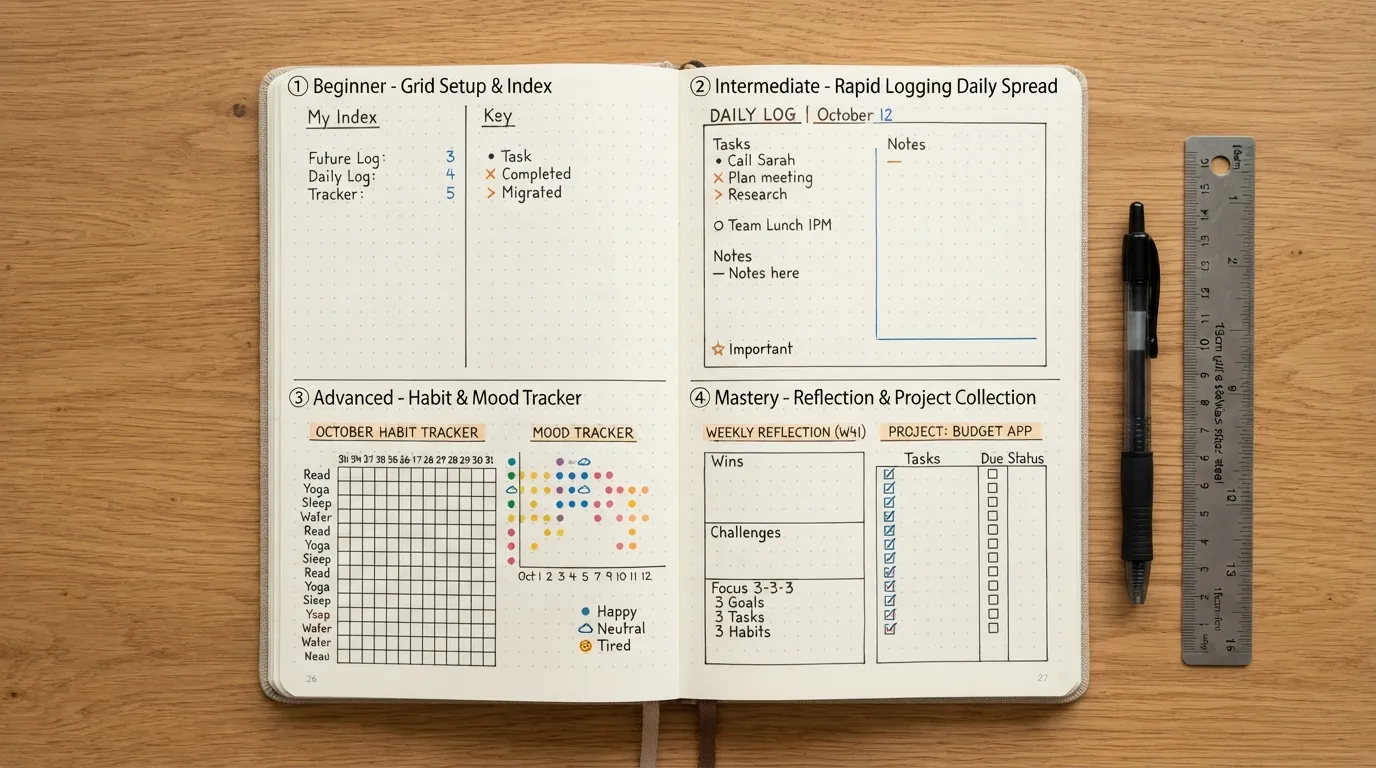 ① Beginner - Grid Setup & Index
My Index
Future Log: 3
Daily Log: 4
Tracker: 5
Key
• Task
× Completed
> Migrated
② Intermediate - Rapid Logging Daily Spread
DAILY LOG | October 12
Tasks
• Call Sarah
× Plan meeting
> Research
○ Team Lunch 1PM
Notes
— Notes here
☆ Important
Notes
—
③ Advanced - Habit & Mood Tracker
OCTOBER HABIT TRACKER
37 38 55 36 17 28 27 28 29 30 31
Read
Yoga
Sleep
Wafer
Read
Yoga
Sieep
Read
Yoga
Sieep
Ysap
Wafer
Water
MOOD TRACKER
Oct 1 2 3 4 5 7 9 10 11 12
Happy
Neutral
Tired
26
④ Mastery - Reflection & Project Collection
WEEKLY REFLECTION (W41)
Wins
Challenges
Focus 3-3-3
3 Goals
3 Tasks
3 Habits
PROJECT: BUDGET APP
Tasks Due Status
27